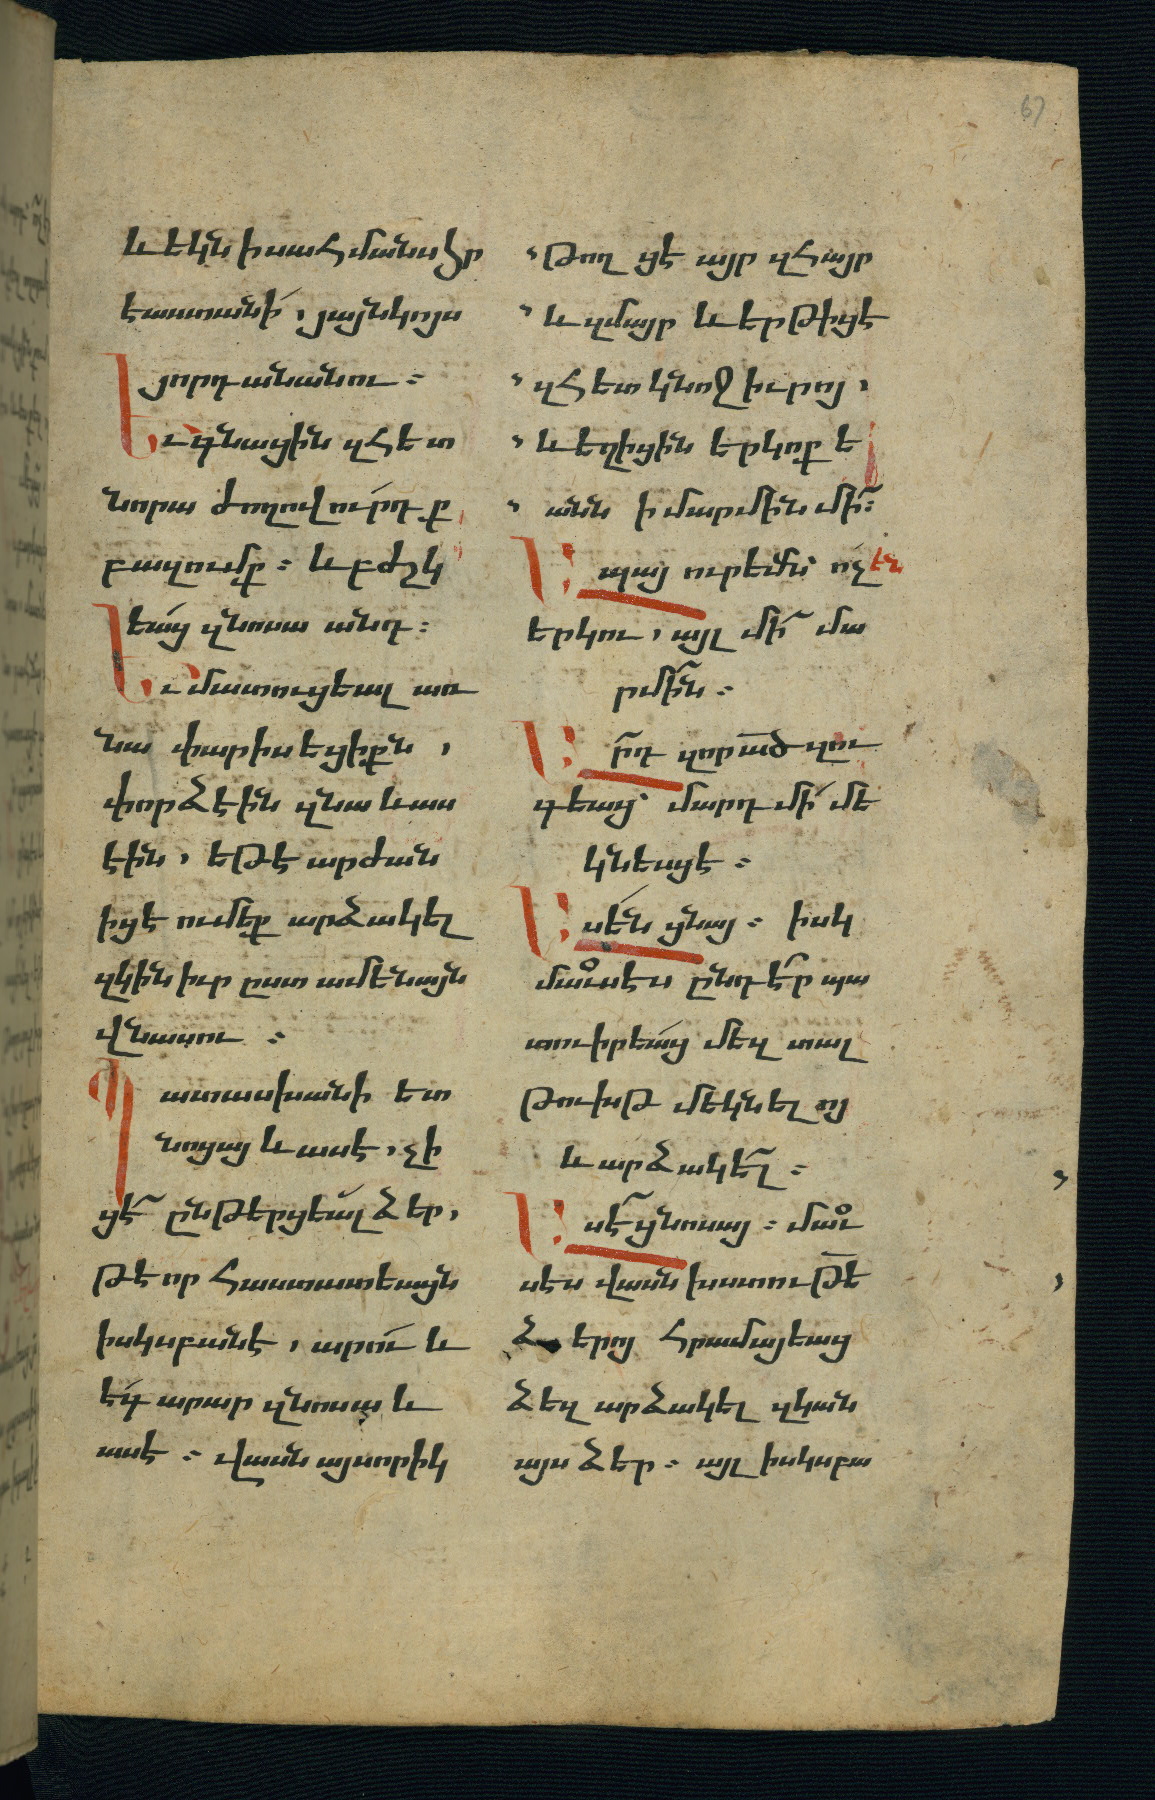 67
և եկն ի սահմանս հր
էաստանի՛, յայնկոյս
յորդանանու :
Եւ գնացին զհետ
նորա ժողովուրդք
բազումք : և բժշկ
եաց զնոսա անդ :
Եւ մատուցեալ առ
նա փարիսեցիքն ,
փորձէին զնա և աս
էին , եթէ արժան
իցէ ումեք արձակել
զկին իւր ըստ ամենայն
վնասու :
Պատասխանի ետ
նոցայ և ասէ , չի
ցէ՞ ընթերցեալ ձեր ,
թէ որ հաստատեսայն
իսկսբանէ , արու և
էգ արար զնոսա և
ասէ : վասն այսորիկ
թող ցէ այր զհայր
և զմայր և երթիցէ
զհետ կնոջ իւրոյ ,
և եղիցին երկոք ե
անն ի մարմին մի :
Ապայ ուրեմն ոչ են
երկու , այլ մի մա
րմին :
Արդ զոր ած զու
գեաց մարդ մի՛ մե
կնեսցէ :
Ասեն ցնայ : իսկ
մաւսէս ընդէ՞ր պա
տուիրեաց մեզ տալ
թուխթ մեկնել ոյ
և արձակել :
Ասէ ցնոսայ : մաւ
սէս վասն խստութե
ձերոյ հրամայեաց
ձեզ արձակել զկան
այս ձեր : այլ իսկսբա